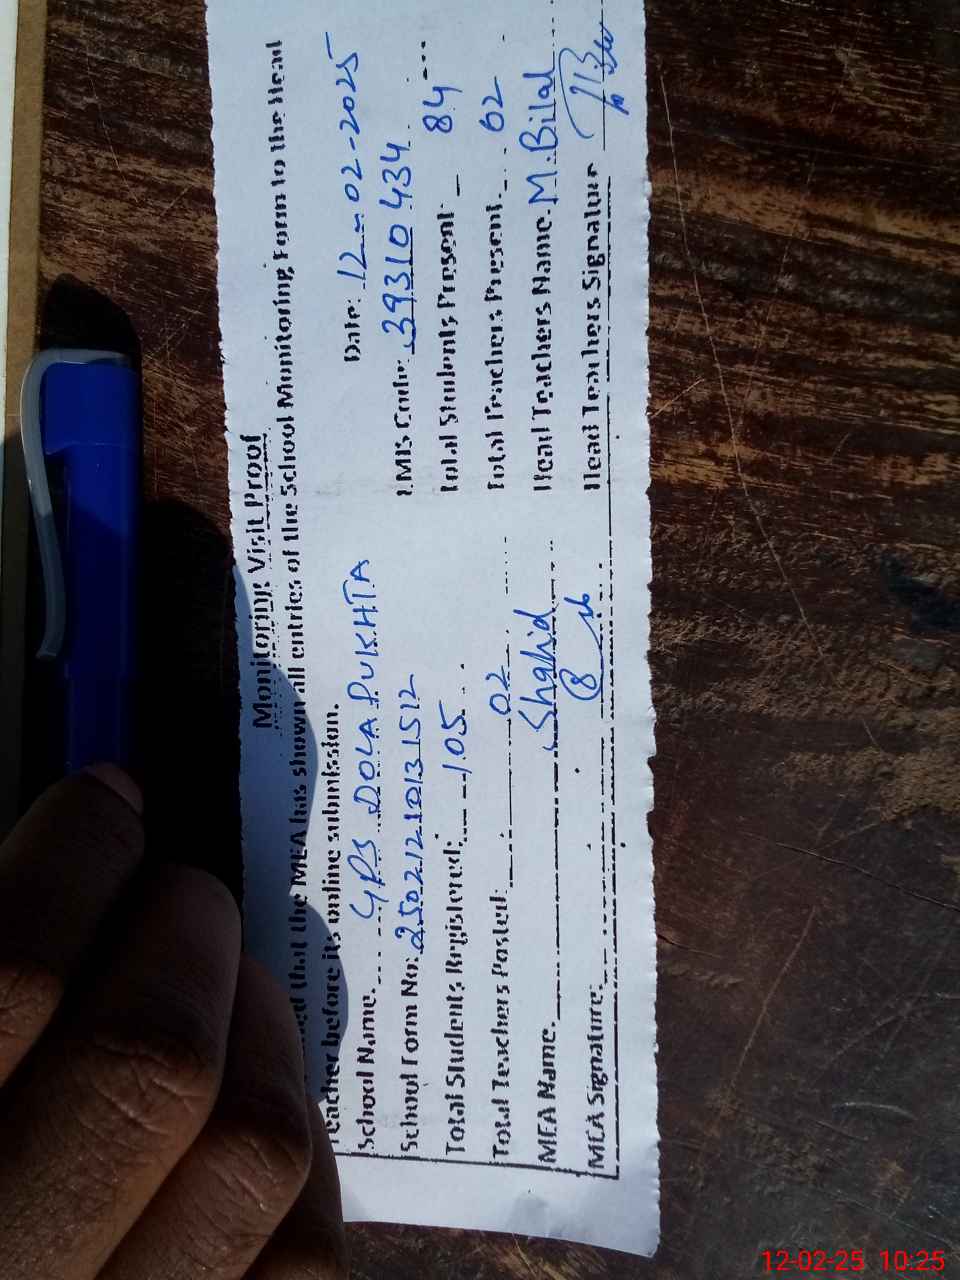 Monitoring Visit Proof
that the MEA has shown all entries of the School Monitoring Form to the Head
Teacher before its online submission.
Date: 12-02-2025
School Name. GPS DOLA PUKHTA
School Form No: 25021210131512 EMIS Code: 39310434
Total Students Registered: 105 Total Students Present 84
Total Teachers Posted: 02 Total Teachers Present 02
MEA Name. Shahid Head Teachers Name. M.Bilal
MEA Signature: Head Teachers Signature
12-02-25 10:25